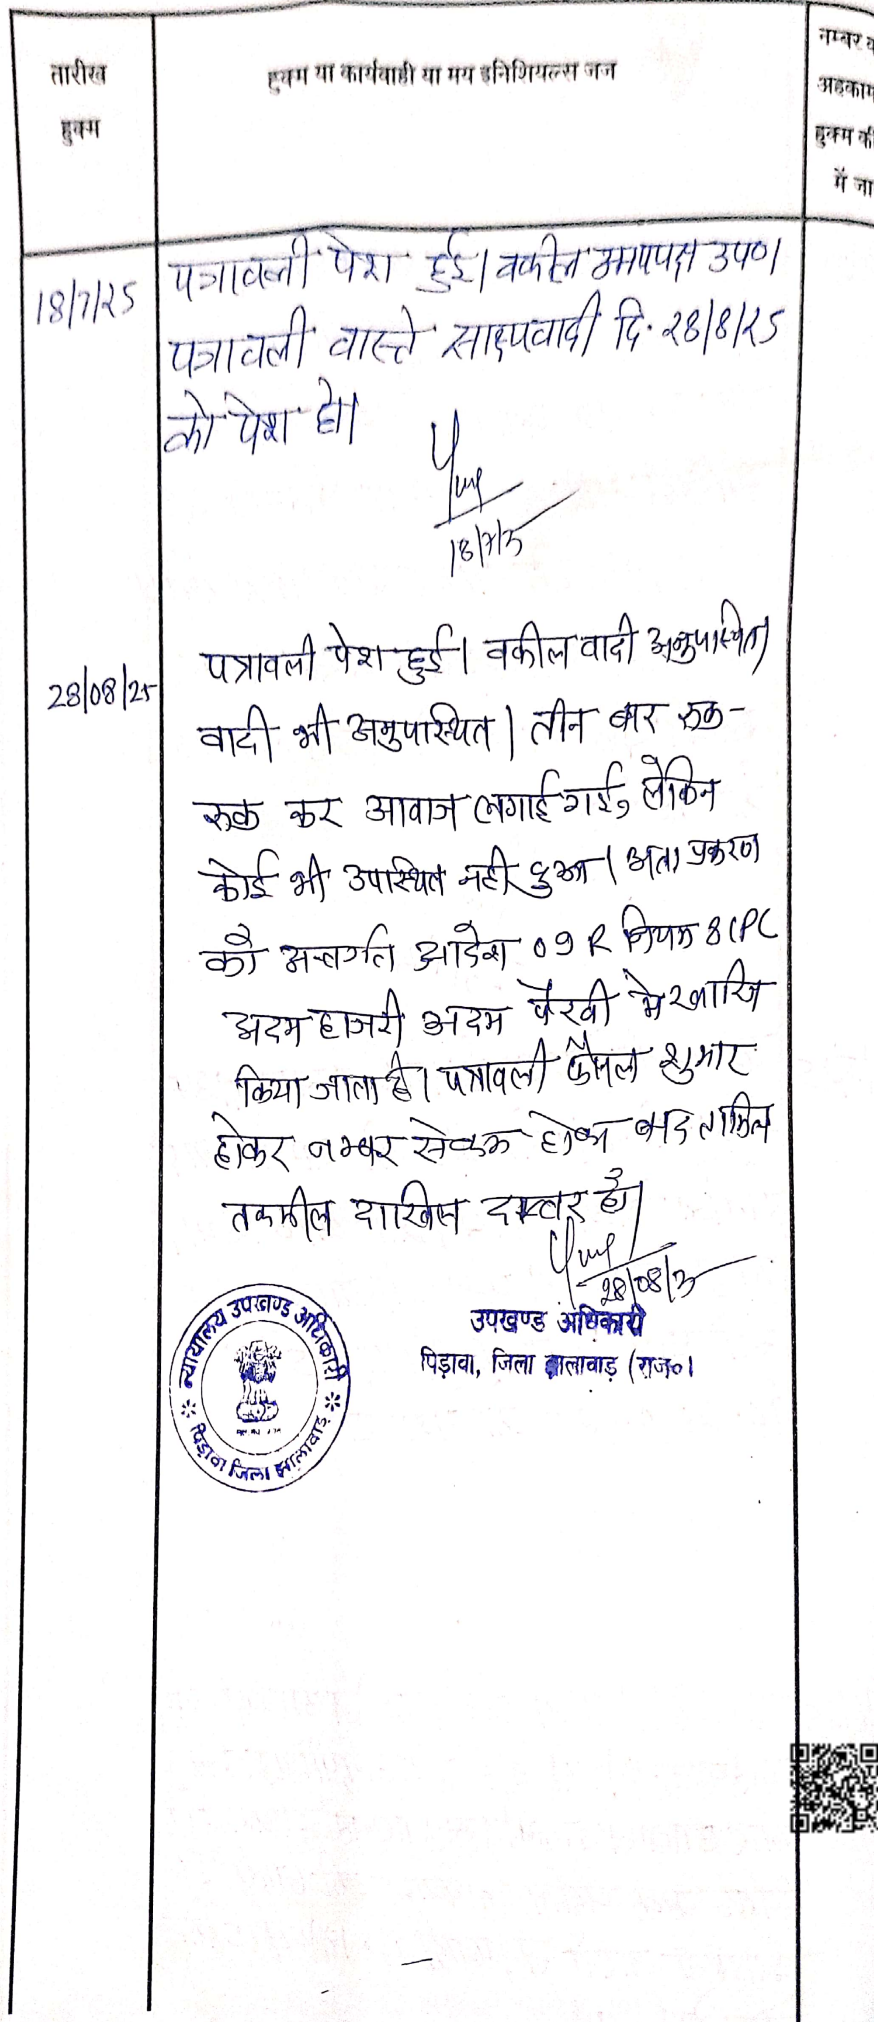 तारीख
हुक्म
हुक्म या कार्यवाही या मय इनिशियल्स जज
नम्बर व
अहकाम
हुक्म की
में जा
18/7/25
पत्रावली पेश हुई। वकील उभयपक्ष उप०।
पत्रावली वास्ते साक्ष्यवादी दि. 28/8/25
को पेश हो।
18/7/25
28/08/25
पत्रावली पेश हुई। वकील वादी अनुपस्थित।
वादी भी अनुपस्थित। तीन बार रुक-
रुक कर आवाज लगाई गई, लेकिन
कोई भी उपस्थित नही हुआ। अतः प्रकरण
को अन्तर्गत आदेश 09 R नियम 8 CPC
अदम हाजरी अदम पैरवी मे खारिज
किया जाता है। पत्रावली फैसल शुमार
होकर नम्बर से कम होकर बाद तामिल
तकमील दाखिल दफ्तर हो।
28/08/25
उपखण्ड अधिकारी
पिड़ावा, जिला झालावाड़ (राज०)
न्यायालय उपखण्ड अधिकारी
पिड़ावा जिला झालावाड़